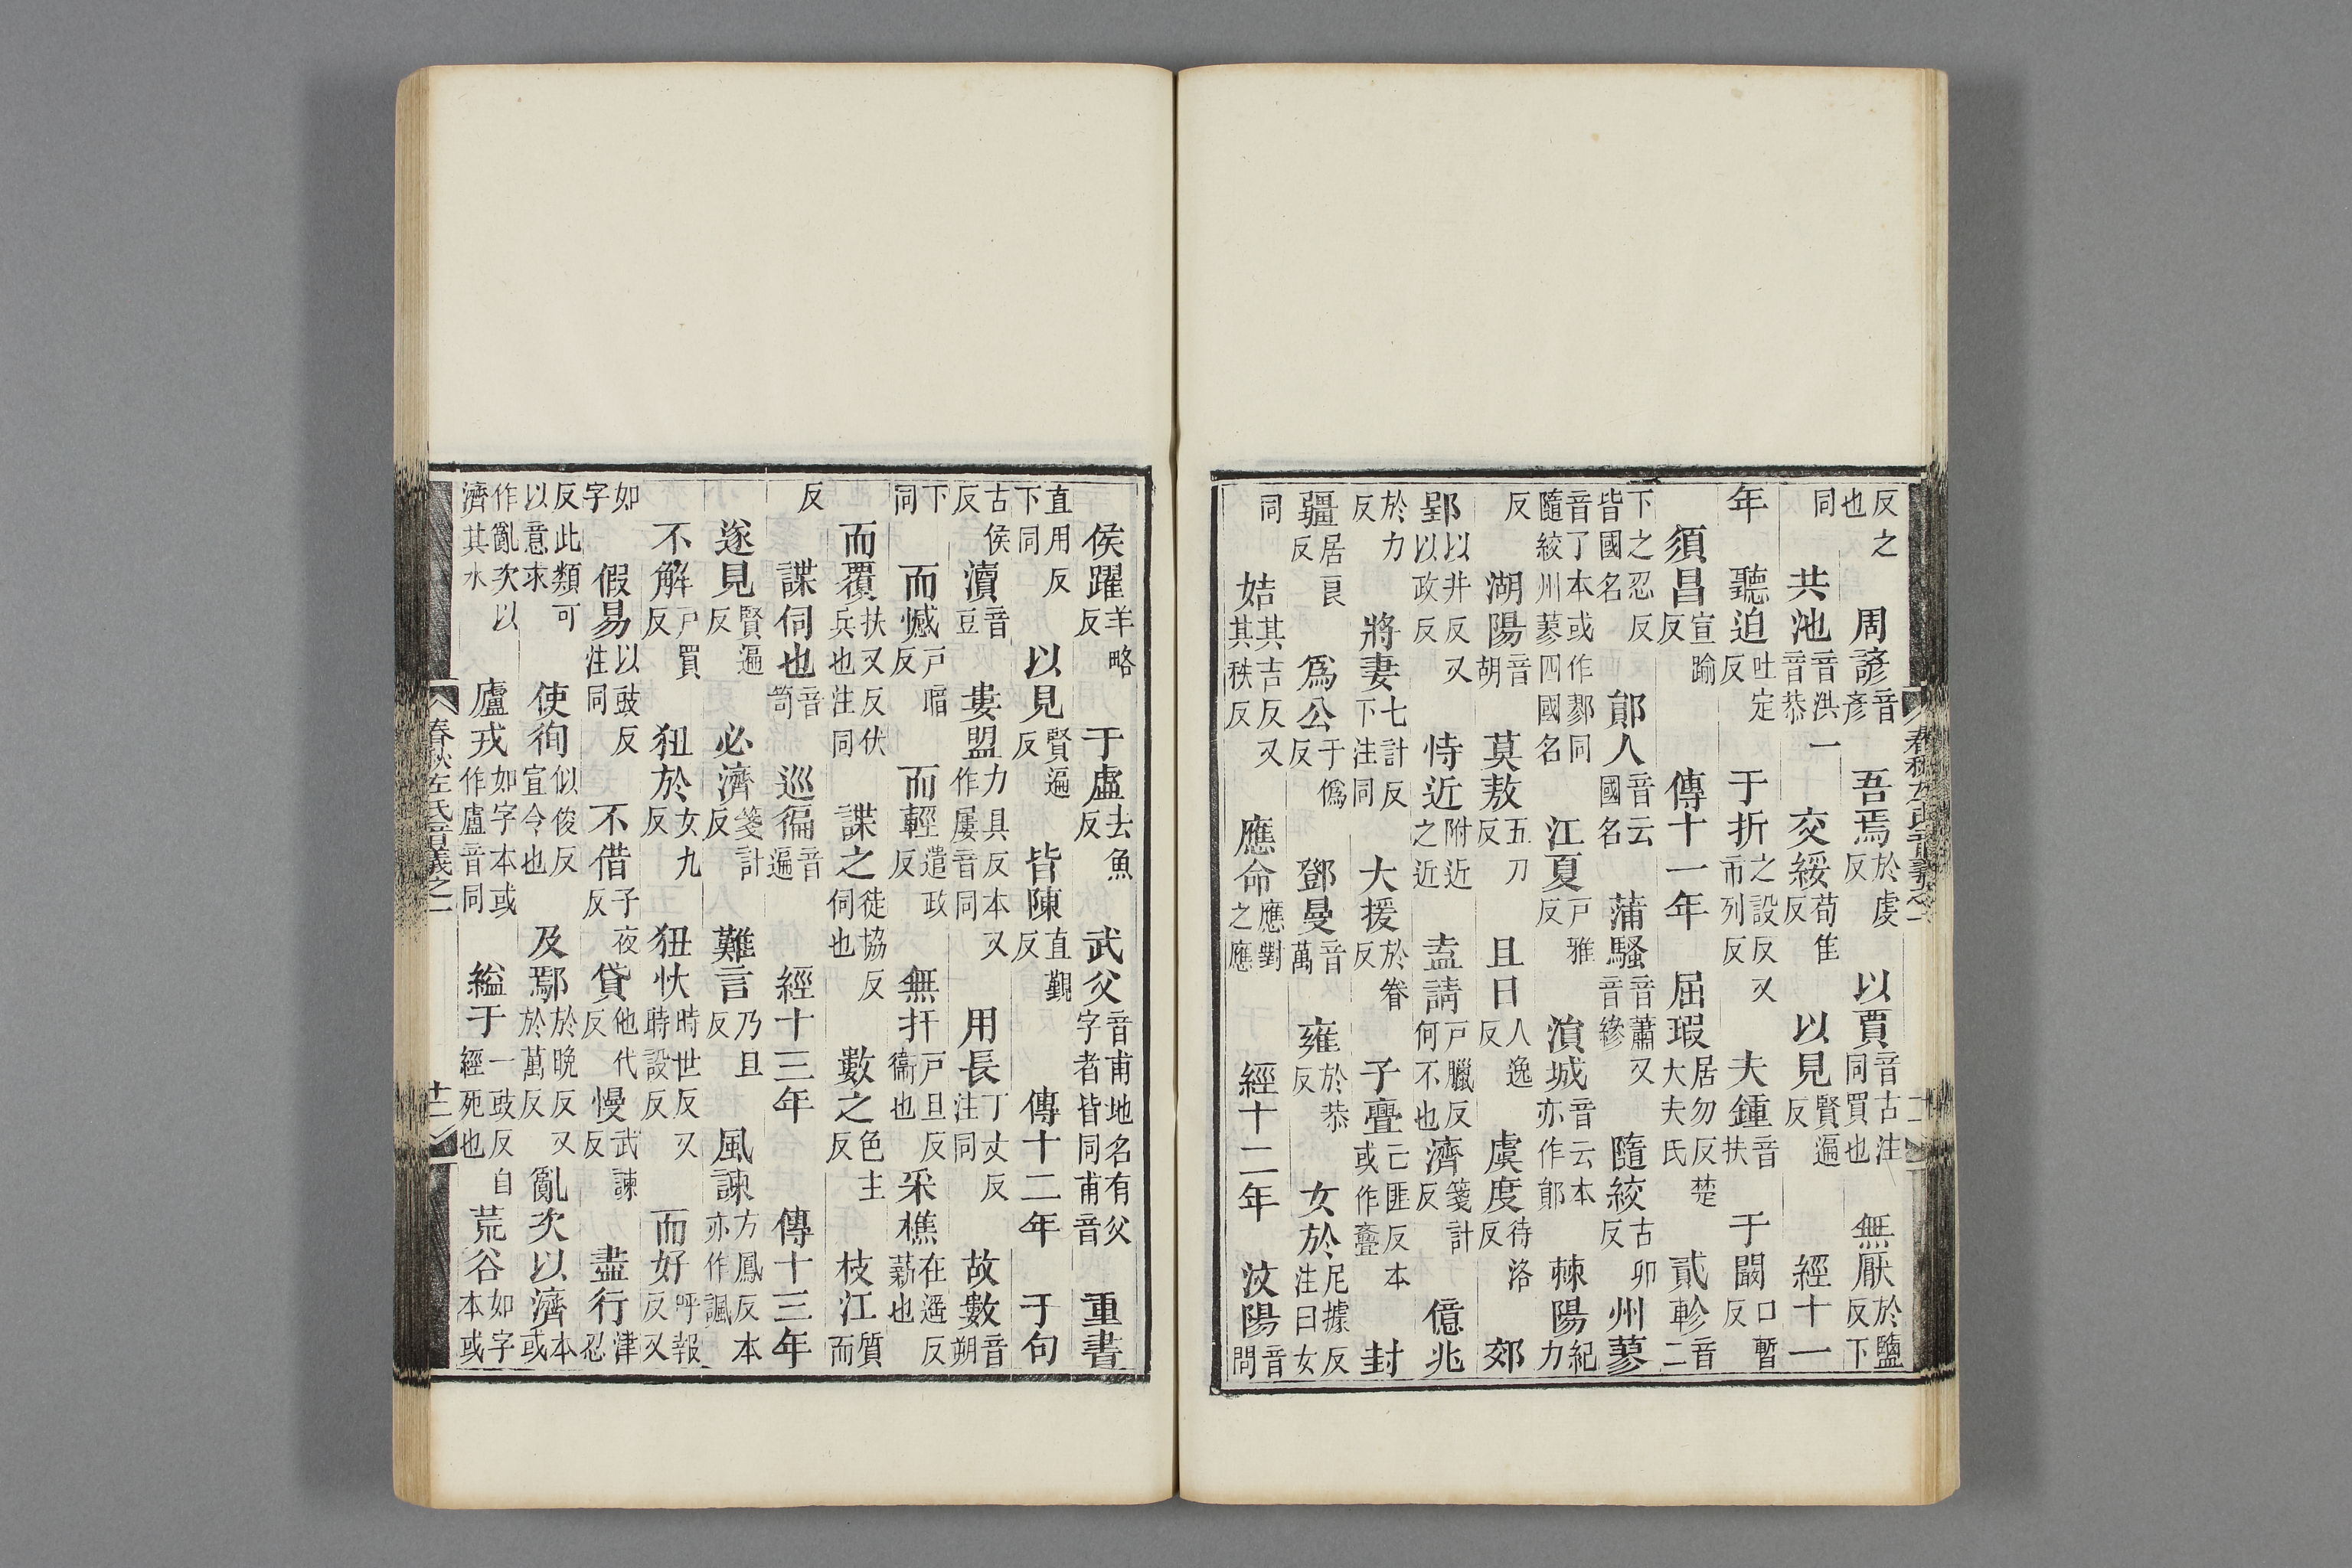 春秋左氏音義之一
反之也 周諺音彥 吾焉於虔反 以賈音古注同買也 無厭於鹽反下
同 共池音洪一音恭 交綏荀隹反 以見賢遍反 經十一
年 聽迫吐定反 于折之設反又市列反 夫鍾音扶 于闞口暫反
須昌宣踰反 傳十一年 屈瑕居勿反楚大夫氏 貳軫音二
下之忍反皆國名 鄖人音云國名 蒲騷音蕭又音縿 隨絞古卯反 州蓼
音了本或作鄝同隨絞州蓼四國名 江夏戸雅反 溳城音云本亦作鄖 棘陽紀力
反 湖陽音胡 莫敖五刀反 且日人逸反 虞度待洛反 郊
郢以井反又以政反 恃近附近之近 盍請戸臘反何不也 濟箋計反 億兆
於力反 將妻七計反下注同 大援於眷反 子亹亡匪反本或作斖 封
疆居良反 爲公于僞反 鄧曼音萬 雍於恭反 女於尼據反注曰女
同 姞其吉反又其秩反 應命應對之應 經十二年 汶陽音問
侯躍羊略反 于虛去魚反 武父音甫地名有父字者皆同甫音 重書
直用反下同 以見賢遍反 皆陳直覲反 傳十二年 于句
古侯反 瀆音豆 婁盟力具反本又作屢音同 用長丁丈反注同 故數音朔
下同 而憾戸暗反 而輕遣政反 無扞戸旦反衞也 采樵在遥反薪也
而覆扶又反伏兵也注同 諜之徒協反伺也 數之色主反 枝江質而
反 諜伺也音笥 巡徧音遍 經十三年 傳十三年
遂見賢遍反 必濟箋計反 難言乃旦反 風諫方鳳反本亦作諷
不解戸買反 狃於女九反 狃忕時世反又時設反 而好呼報反又
如字 假易以豉反注同 不借子夜反 貸他代反 慢武諫反 盡行津忍
反此類可以意求 使徇似俊反宣令也 及鄢於晚反又於萬反 亂次以濟本或
作亂次以濟其水 廬戎如字本或作盧音同 縊于一豉反自經死也 荒谷如字本或
春秋左氏音義之一 十二